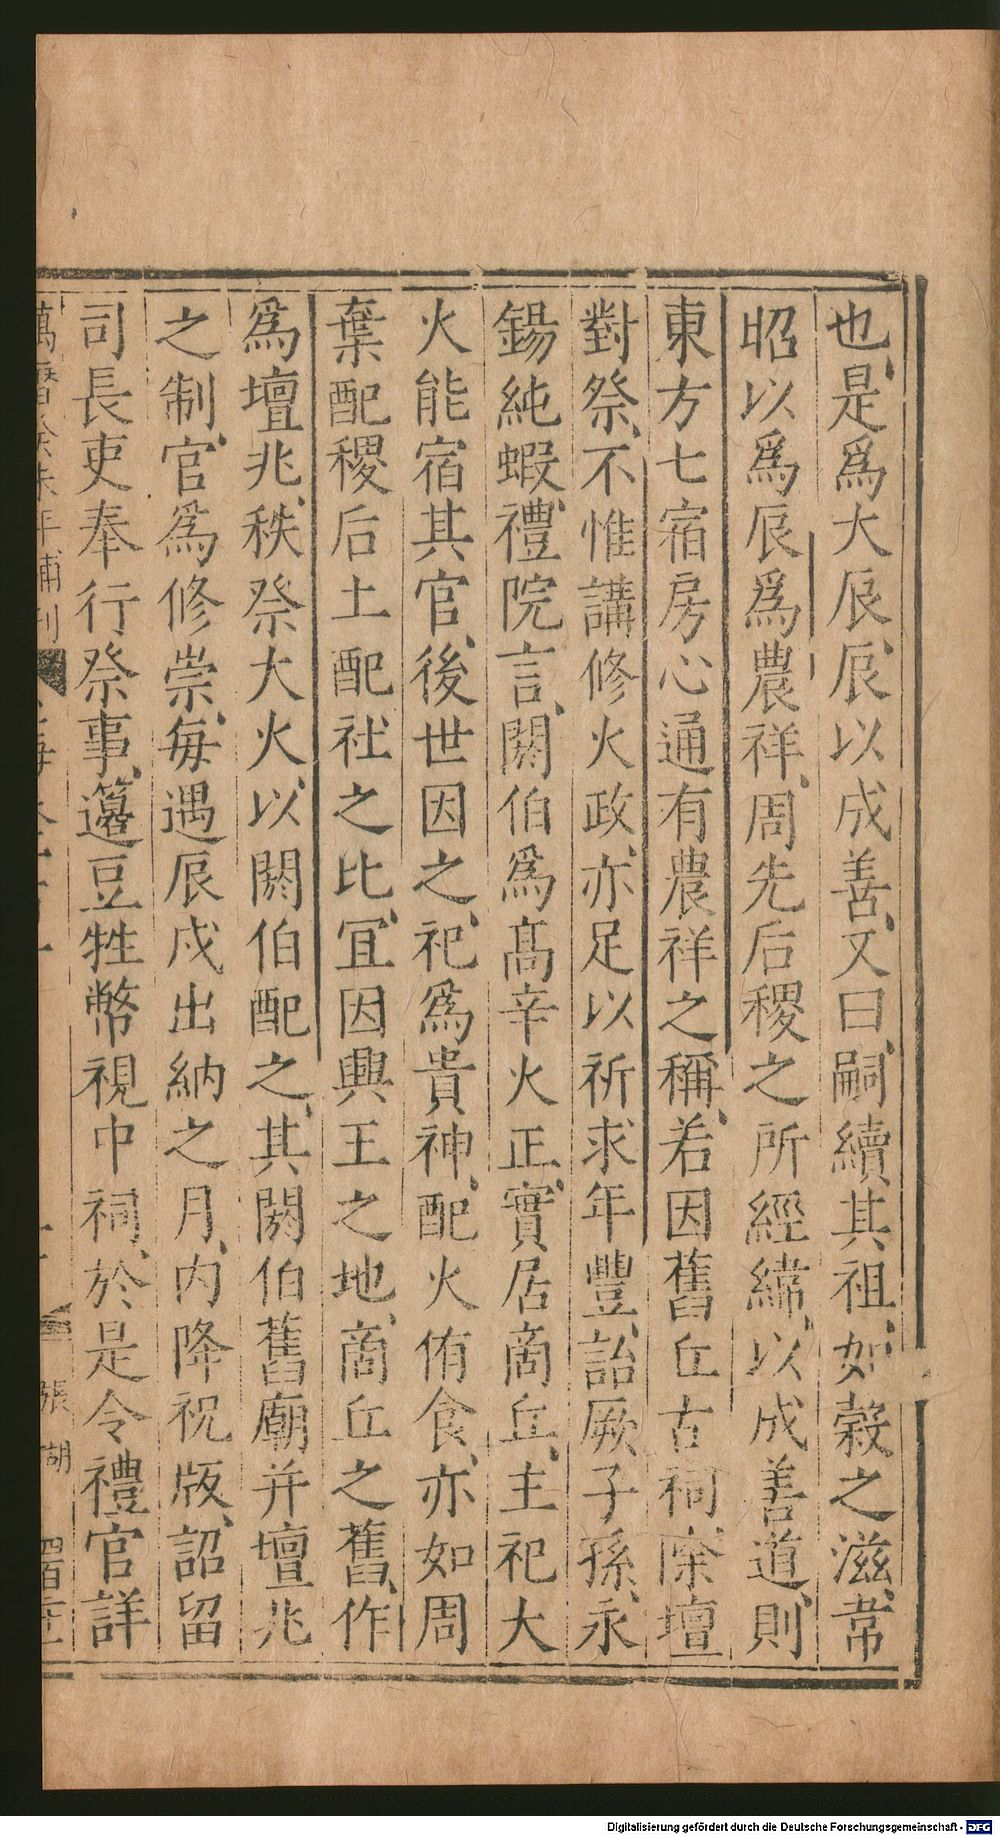 也是爲大辰辰以成善又曰嗣續其祖如穀之滋韋
昭以爲辰爲農祥周先后稷之所經緯以成善道則
東方七宿房心通有農祥之稱若因舊丘古祠除壇
對祭不惟講修火政亦足以祈求年豐詒厥子孫永
錫純嘏禮院言閼伯爲髙辛火正實居商丘主祀大
火能宿其官後世因之祀爲貴神配火侑食亦如周
棄配稷后土配社之比冝因興王之地商丘之舊作
爲壇兆秩祭大火以閼伯配之其閼伯舊廟并壇兆
之制官爲修崇毎遇辰戌出納之月内降祝版詔留
司長吏奉行祭事籩豆牲幣視中祠於是令禮官詳
萬曆 年補刊
張 湖
Digitalisierung gefördert durch die Deutsche Forschungsgemeinschaft - DFG